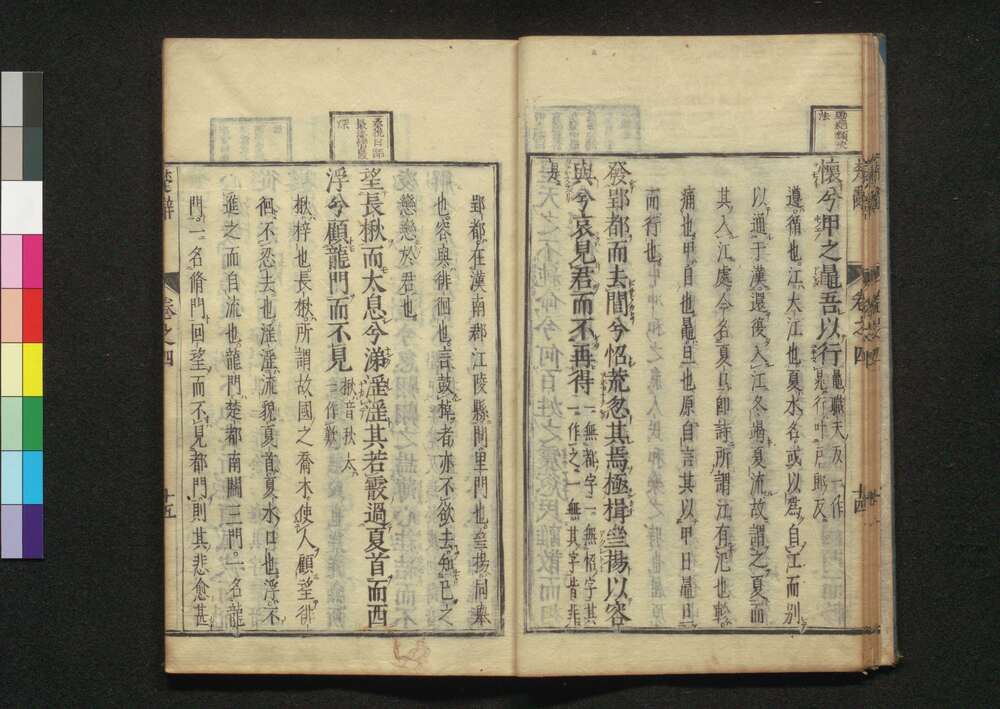 懷兮甲之鼂吾以行鼂職夭反一作
鼂行叶戸郎反
遵循也江大江也夏水名或以爲自江而别
以通于漢還復入江冬竭夏流故謂之夏而
其入江處今名夏口即詩所謂江有汜也軫
痛也甲日也鼂旦也原自言其以甲日鼂旦
而行也
發郢都而去閭兮怊荒忽其焉極楫坐揚以容
與兮哀見君而不再得一無都字一無怊字其
一作之一無其字皆非
是
楚辭
卷之四
十四
郢都在漢南郡江陵縣閭里門也坐揚同舉
也容與徘徊也言鼓棹者亦不欲去知己之
戀戀於君也
望長楸而太息兮涕淫淫其若霰過夏首而西
浮兮顧龍門而不見楸音秋太
一作歎
楸梓也長楸所謂故國之喬木使人顧望徘
徊不忍去也淫淫流貌夏首夏水口也浮不
進之而自流也龍門楚都南關三門一名龍
門一名脩門回望而不見都門則其悲愈甚
楚辭
卷之四
十五